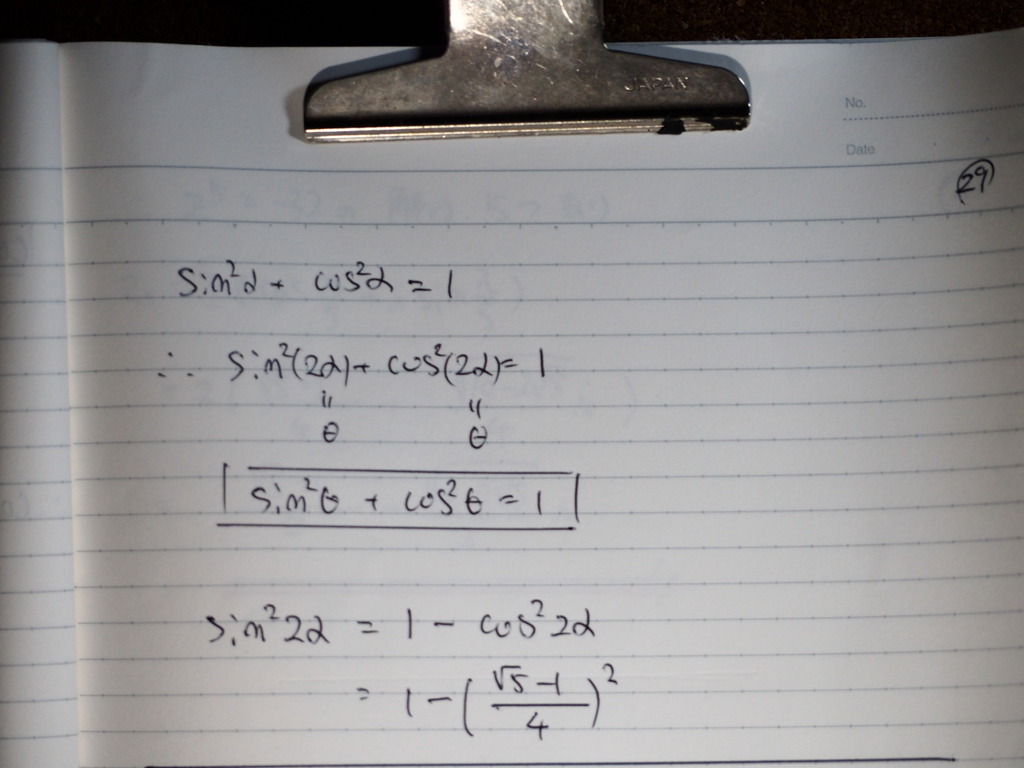 JAPAN
No.
Date
29
sin²α + cos²α = 1
∴ sin²(2α) + cos²(2α) = 1
" "
θ θ
sin²θ + cos²θ = 1
sin²2α = 1 - cos²2α
= 1 - ( (√5 - 1) / 4 )²